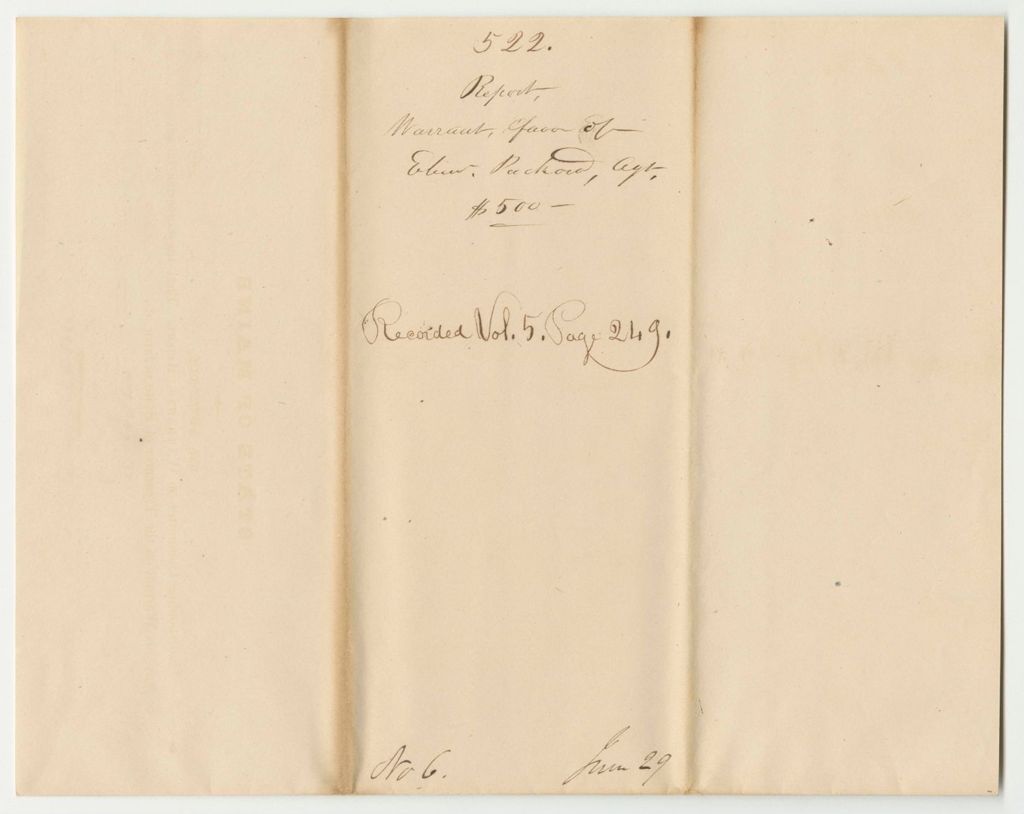 522.
Report,
Warrant, favor of
Eben. Packard, Agt,
$500 —
Recorded Vol. 5. Page 249.
No 6.
June 29
STATE OF MAINE